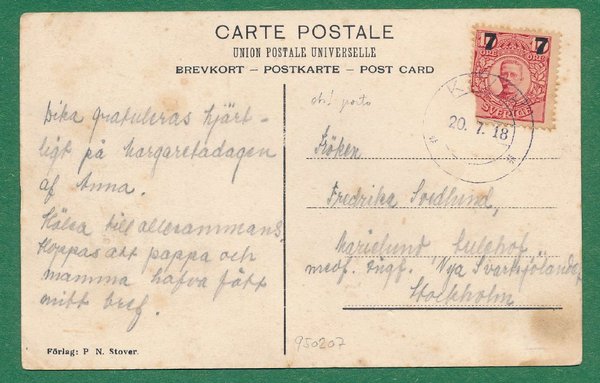 CARTE POSTALE
UNION POSTALE UNIVERSELLE
BREVKORT – POSTKARTE – POST CARD
7 7
ÖRE ÖRE
SVERIGE
20. 7. 18
porto
gratuleras hjärt-
ligt på Margaretadagen
af Anna.
Hälsa till allesammans
Hoppas att pappa och
mamma hafva fått
mitt bref.
Fröken
Fredrika Svedlund,
Marielund
medf. ångf. "Nya Svartsjölandet,
Stockholm
950207
Förlag: P. N. Stover.